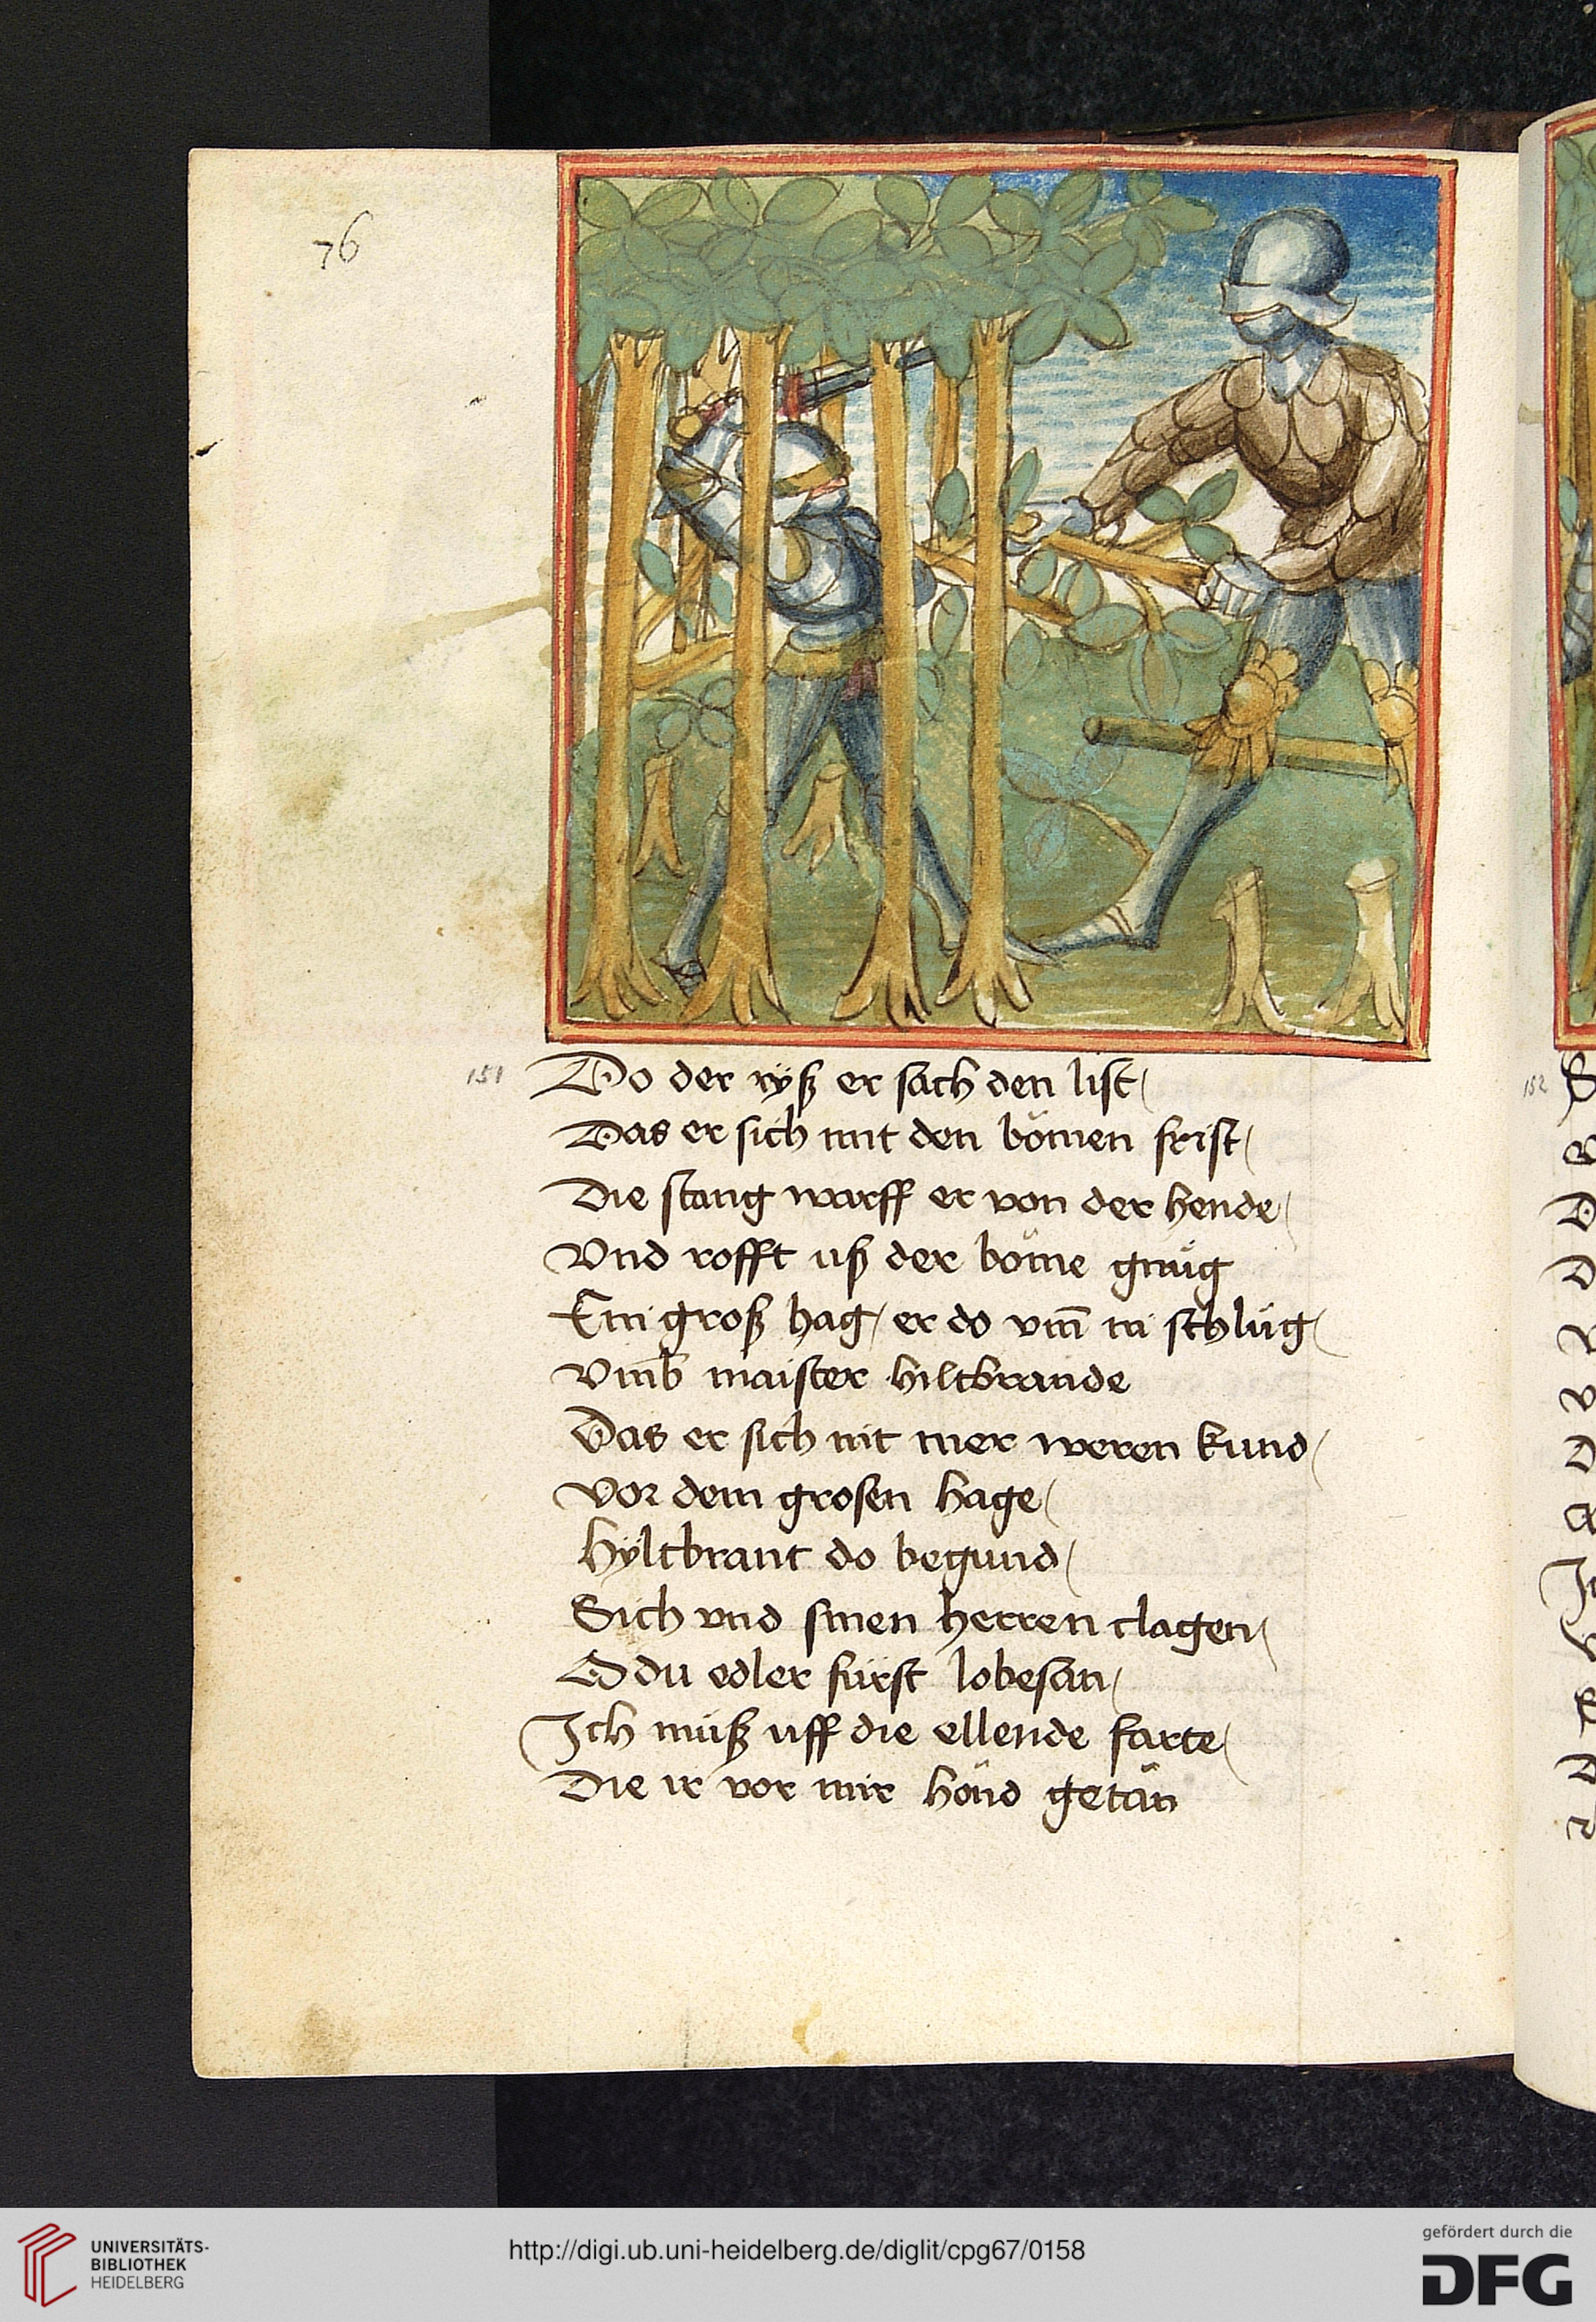 76
151
Do der ryß er sach den list /
Das er sich mit den bömen frist /
Die stang warff er von der hende /
Vnd rofft uß der böme gnuͦg
Ein groß hag / er do vm̄ in schluͦg /
Vmb maister hiltbrande
Das er sich nit mer weren kund /
Vor dem grosen hage /
Hÿltbrant do begund /
Sich vnd sinen herren clagen /
O du edler fürst lobesan /
Ich muͦß uff die ellende farte /
Die ir vor mir hönd getän
152
UNIVERSITÄTS-
BIBLIOTHEK
HEIDELBERG
http://digi.ub.uni-heidelberg.de/diglit/cpg67/0158
gefördert durch die
DFG